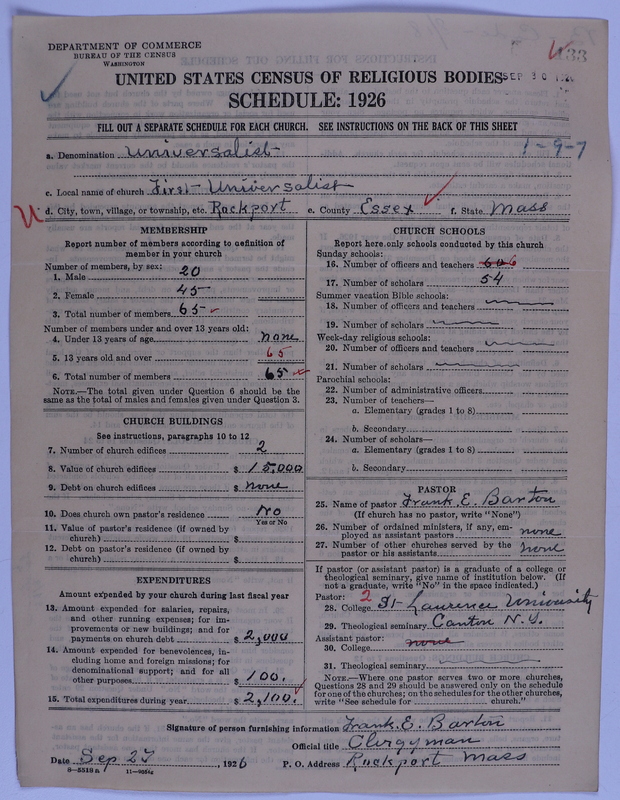 DEPARTMENT OF COMMERCE
BUREAU OF THE CENSUS
WASHINGTON
133
UNITED STATES CENSUS OF RELIGIOUS BODIES
SEP 30 1926
SCHEDULE: 1926
FILL OUT A SEPARATE SCHEDULE FOR EACH CHURCH. SEE INSTRUCTIONS ON THE BACK OF THIS SHEET
a. Denomination Universalist 1-9-7
c. Local name of church First Universalist
d. City, town, village, or township, etc. Rockport e. County Essex f. State Mass
MEMBERSHIP
Report number of members according to definition of member in your church
Number of members, by sex:
1. Male 20
2. Female 45
3. Total number of members 65
Number of members under and over 13 years old:
4. Under 13 years of age none
5. 13 years old and over 65
6. Total number of members 65
NOTE.—The total given under Question 6 should be the
same as the total of males and females given under Question 3.
CHURCH BUILDINGS
See instructions, paragraphs 10 to 12
7. Number of church edifices 2
8. Value of church edifices $ 15,000
9. Debt on church edifices $ none
10. Does church own pastor's residence No
Yes or No
11. Value of pastor's residence (if owned by
church) $
12. Debt on pastor's residence (if owned by
church) $
EXPENDITURES
Amount expended by your church during last fiscal year
13. Amount expended for salaries, repairs,
and other running expenses; for im-
provements or new buildings; and for
payments on church debt $ 2,000
14. Amount expended for benevolences, in-
cluding home and foreign missions; for
denominational support; and for all
other purposes $ 100.
15. Total expenditures during year $ 2,100.
CHURCH SCHOOLS
Report here only schools conducted by this church
Sunday schools:
16. Number of officers and teachers 6
17. Number of scholars 54
Summer vacation Bible schools:
18. Number of officers and teachers
19. Number of scholars
Week-day religious schools:
20. Number of officers and teachers
21. Number of scholars
Parochial schools:
22. Number of administrative officers
23. Number of teachers—
a. Elementary (grades 1 to 8)
b. Secondary
24. Number of scholars—
a. Elementary (grades 1 to 8)
b. Secondary
PASTOR
25. Name of pastor Frank. E. Barton
(If church has no pastor, write "None")
26. Number of ordained ministers, if any, em-
ployed as assistant pastors none
27. Number of other churches served by the
pastor or his assistants none
If pastor (or assistant pastor) is a graduate of a college or
theological seminary, give name of institution below. (If
not a graduate, write "No" in the space indicated.)
Pastor: 2
28. College St Laurence University
29. Theological seminary Canton N.Y.
Assistant pastor: none
30. College
31. Theological seminary
NOTE.—Where one pastor serves two or more churches,
Questions 28 and 29 should be answered only on the schedule
for one of the churches; on the schedules for the other churches,
write "See schedule for church."
Signature of person furnishing information Frank. E. Barton
Official title Clergyman
Date Sep 27, 1926 P. O. Address Rockport Mass
8—5518 a 11—9554